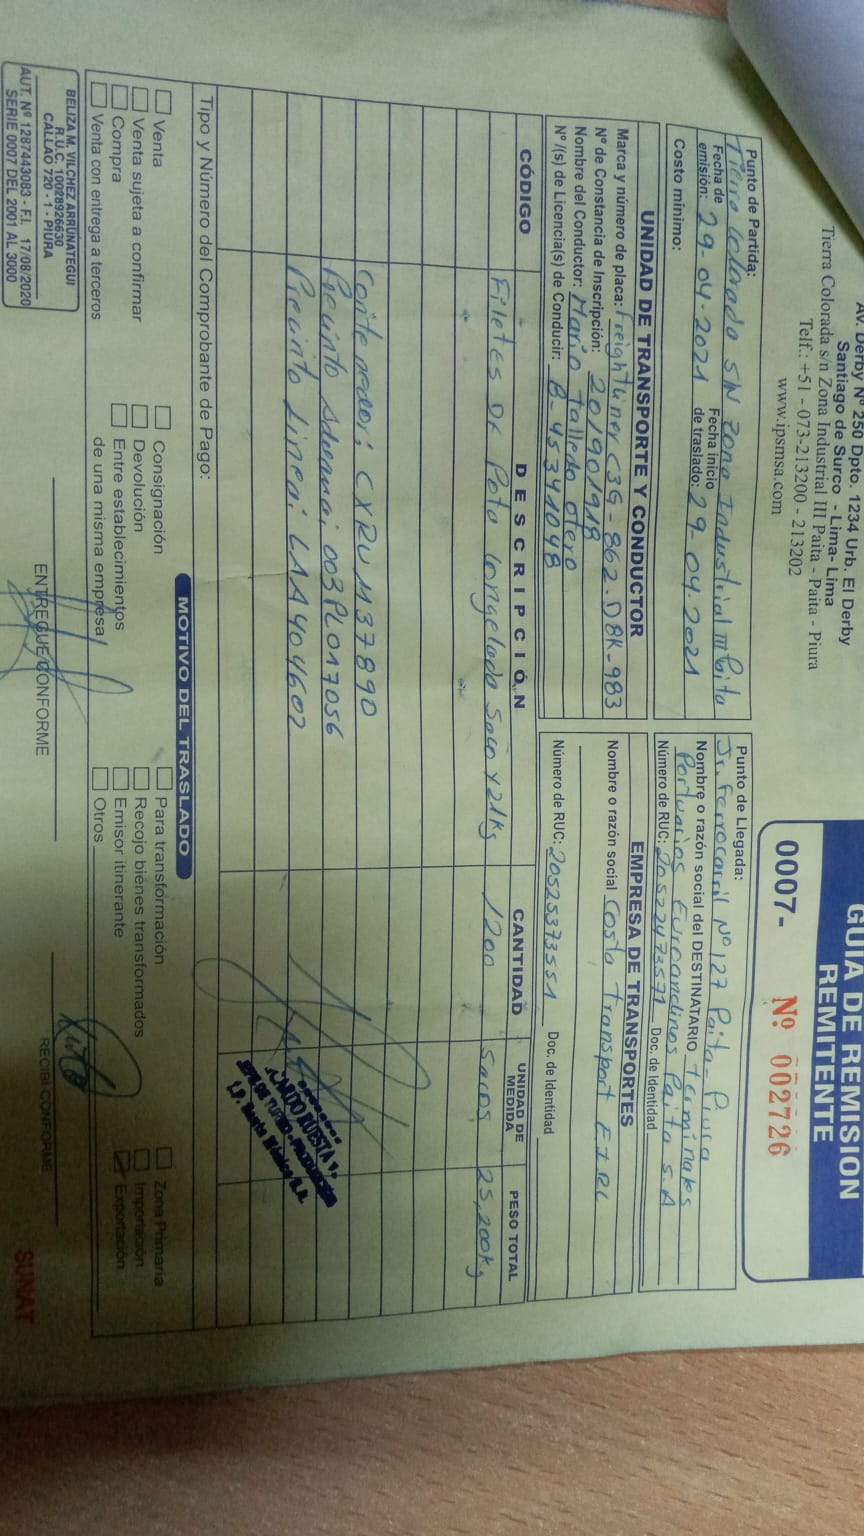 Av. Derby Nº 250 Dpto. 1234 Urb. El Derby
Santiago de Surco - Lima- Lima
Tierra Colorada s/n Zona Industrial III Paita - Paita - Piura
Telf.: +51 - 073-213200 - 213202
www.ipsmsa.com
GUIA DE REMISION
REMITENTE
0007- Nº 002726
Punto de Partida:
Tierra Colorada S/N Zona Industrial III Paita
Fecha de emisión: 29-04-2021 Fecha inicio de traslado: 29-04-2021
Costo mínimo:
Punto de Llegada:
Jr. Ferrocarril Nº 127 Paita - Piura
Nombre o razón social del DESTINATARIO Terminales
Portuarios Euroandinos Paita S.A
Número de RUC: 20522473571 Doc. de Identidad
UNIDAD DE TRANSPORTE Y CONDUCTOR
Marca y número de placa: Freightliner C3G-862-D8K-983
Nº de Constancia de Inscripción: 201901918
Nombre del Conductor: Mario Talledo Otero
Nº /(s) de Licencia(s) de Conducir: B-45341048
EMPRESA DE TRANSPORTES
Nombre o razón social Costa Transport E.I.RL
Número de RUC: 20525373551 Doc. de Identidad
CÓDIGO DESCRIPCIÓN CANTIDAD UNIDAD DE MEDIDA PESO TOTAL
Filetes De Pota Congelada Saco x 21kg 1200 Sacos 25,200kg
Contenedor: CXRU1137890
Precinto Aduana: 003PL017056
Precinto Linea: LAA404602
Tipo y Número del Comprobante de Pago:
MOTIVO DEL TRASLADO
Venta
Venta sujeta a confirmar
Compra
Venta con entrega a terceros
Consignación
Devolución
Entre establecimientos
de una misma empresa
Para transformación
Recojo bienes transformados
Emisor itinerante
Otros
Zona Primaria
Importación
Exportación
BELIZA M. VILCHEZ ARRUNATEGUI
R.U.C. 10028926630
CALLAO 720 - 1 - PIURA
AUT. Nº 1287443083 - F.I. 17/08/2020
SERIE 0007 DEL 2001 AL 3000
ENTREGUE CONFORME
RECIBI CONFORME
SUNAT